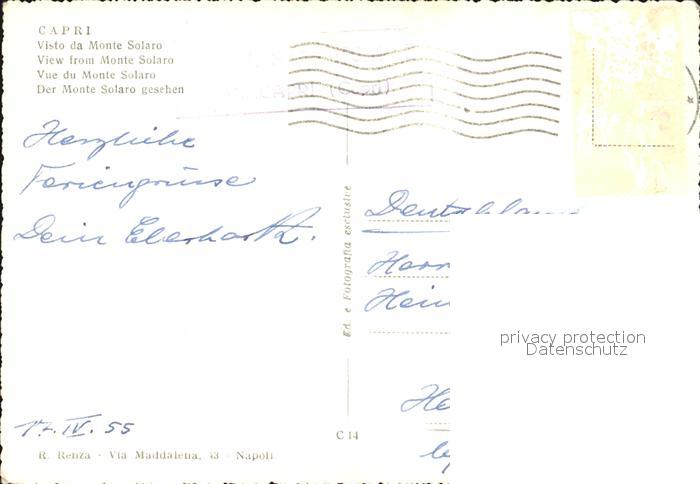 CAPRI
Visto da Monte Solaro
View from Monte Solaro
Vue du Monte Solaro
Der Monte Solaro gesehen
Herzliche
Feriengrüsse
Dein Eberhard.
17. IV. 55
R. Renza - Via Maddalena, 43 - Napoli
Ed. e Fotografia esclusive
C 14
Deutschland
Herr
Hein
privacy protection
Datenschutz
He